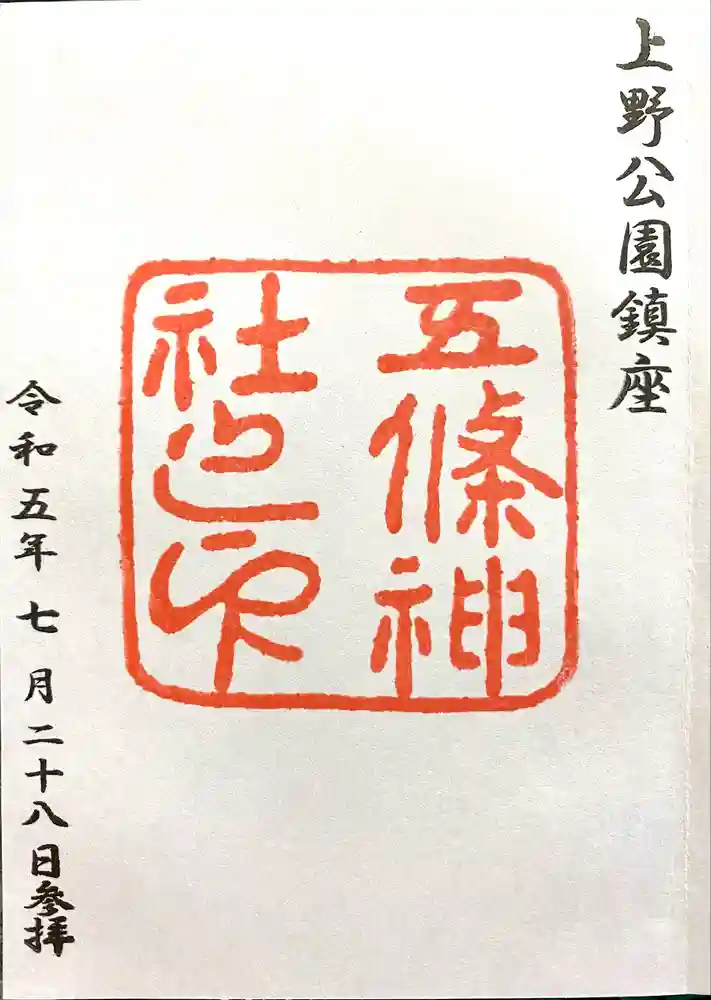 上野公園鎮座
五條神
社之印
令和五年七月二十八日参拝